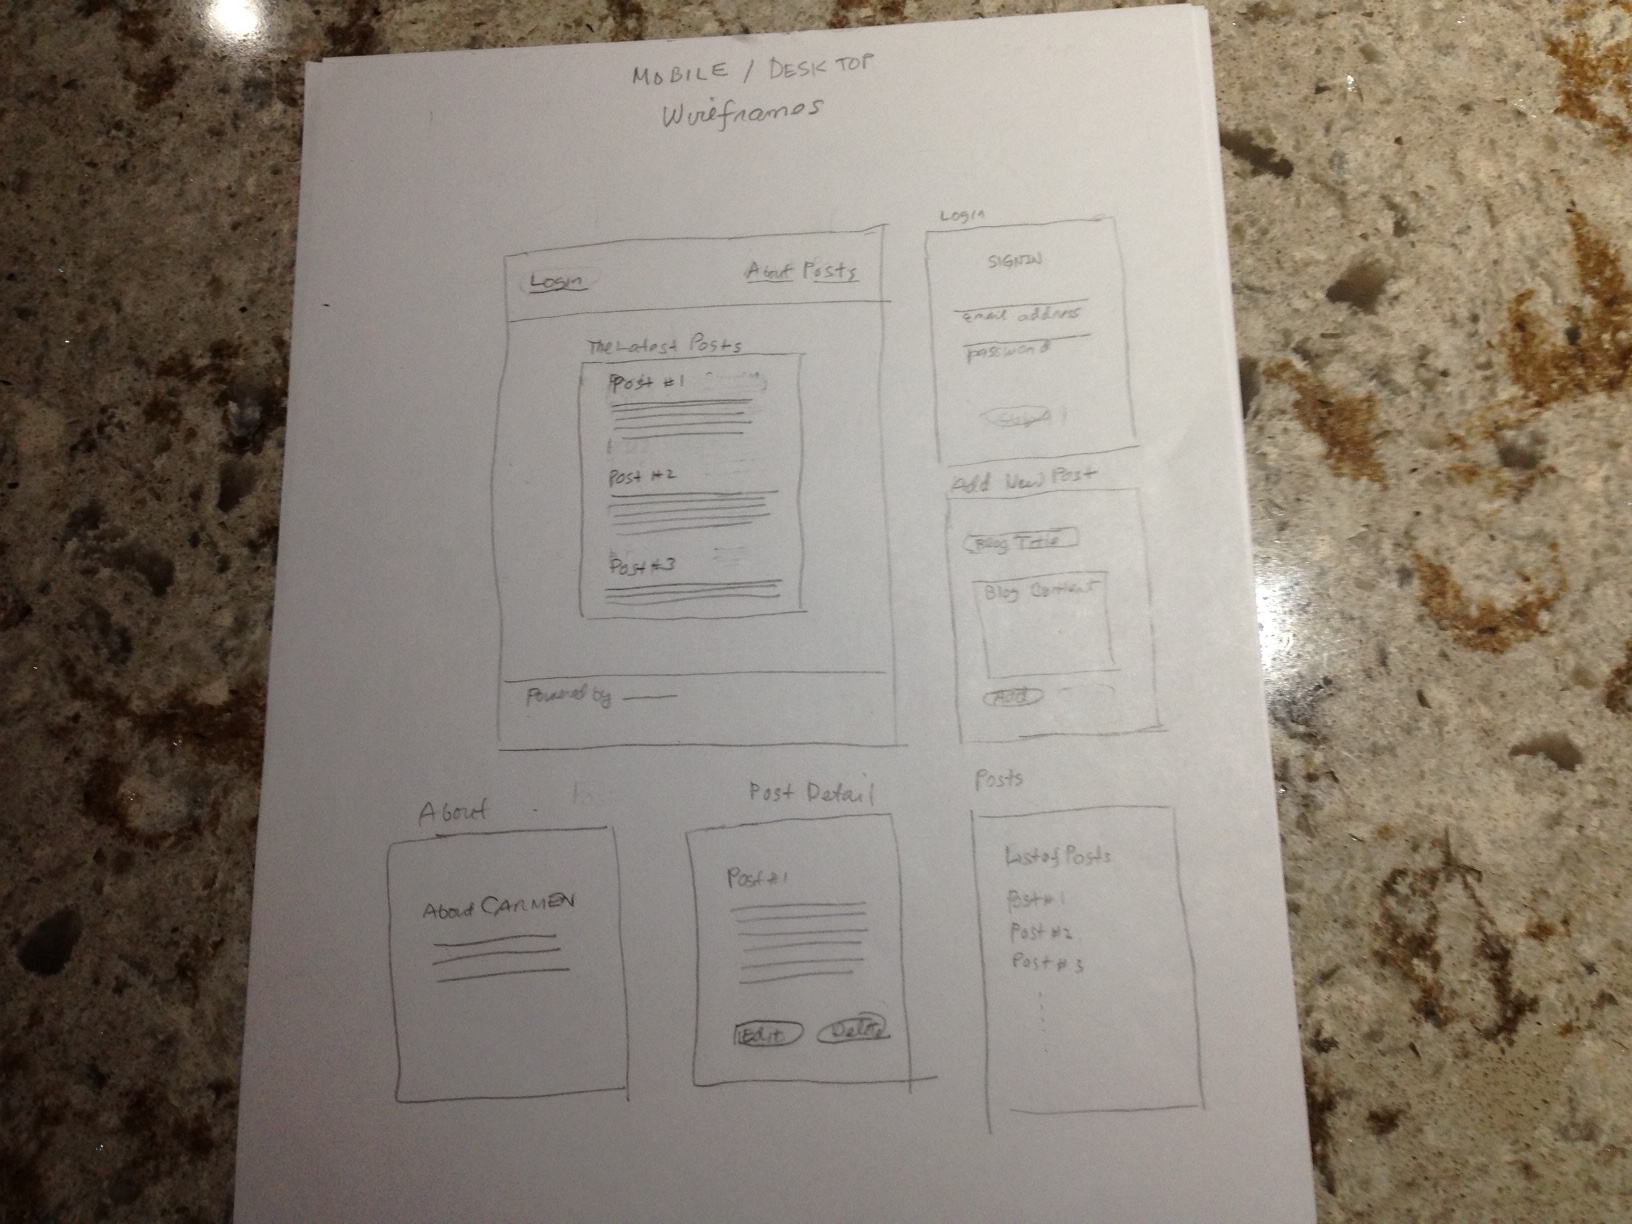 MOBILE / DESKTOP
Wireframes
Login
About Posts
The Latest Posts
Post #1
Post #2
Post #3
Powered by
Login
SIGNIN
Email address
password
Add New Post
Blog Title
Blog Content
Add
About
About CARMEN
Post Detail
Post #1
Edit
Delete
Posts
List of Posts
Post #1
Post #2
Post #3